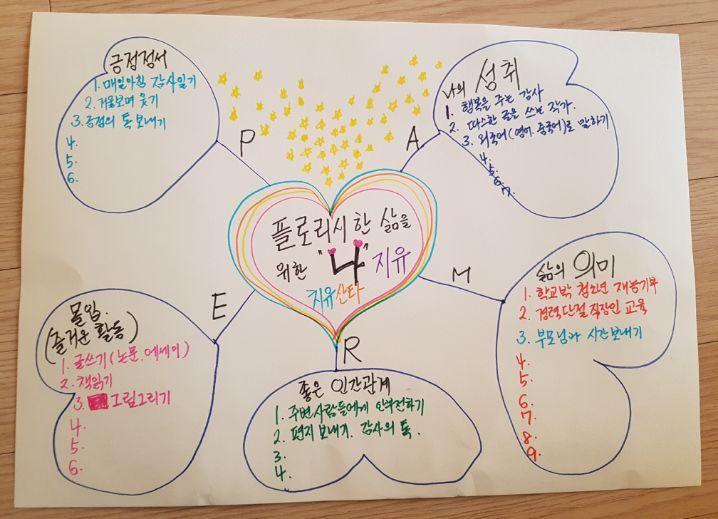 긍정정서
1. 매일아침 감사일기
2. 거울보며 웃기
3. 긍정의 톡 보내기
4.
5.
6.
P
A
나의 성취
1. 행복을 주는 강사
2. 따스한 글을 쓰는 작가.
3. 외국어(영어.중국어)로 말하기
4.
5.
6.
7.
플로리시한 삶을
위한 "나" 지유
지유산타
E
M
R
몰입.
(즐거운 활동)
1. 글쓰기(논문.에세이)
2. 책읽기
3. 그림그리기
4.
5.
6.
좋은 인간관계
1. 주변사람들에게 안부전하기
2. 편지보내기. 감사의 톡.
3.
4.
삶의 의미
1. 학교밖 청소년 재능기부
2. 경력단절 직장인 교육
3. 부모님과 시간보내기
4.
5.
6.
7.
8.
9.